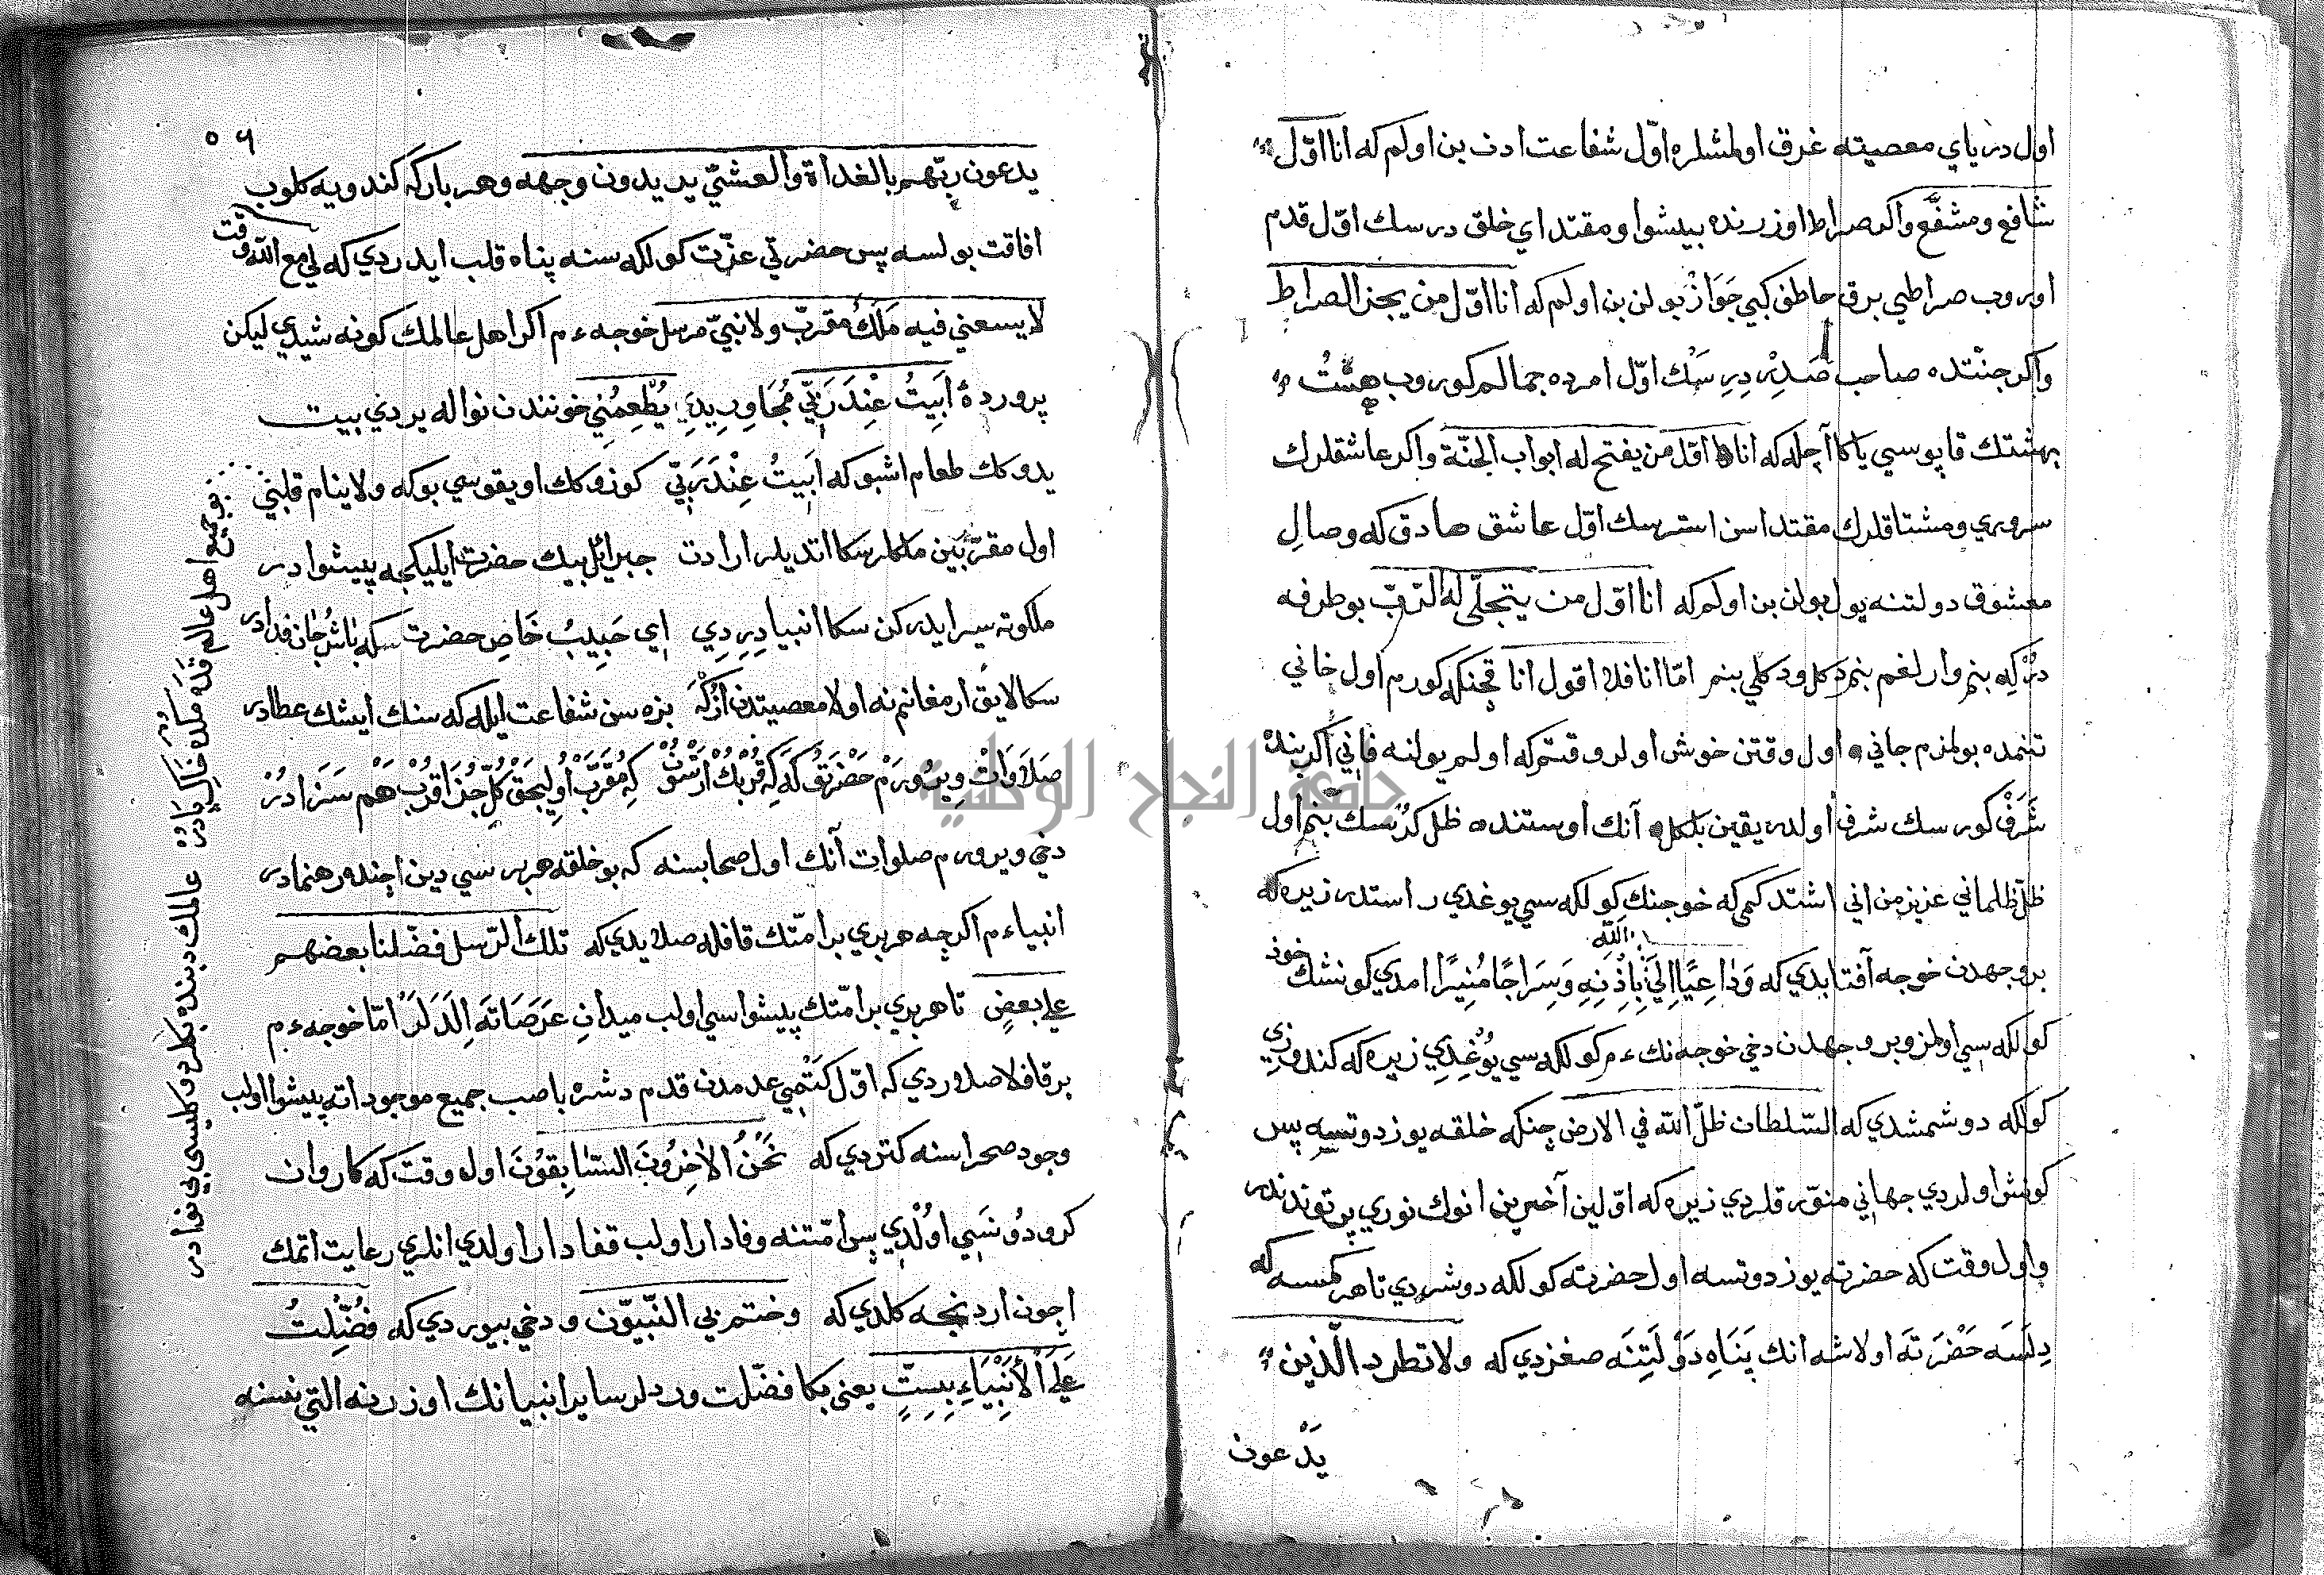 اول درياي معصيته غرق اولمشلره اوّل شفاعت ادن بن اولم كه انا اوّل
شافع ومشفّع واكر صراط اوزرنده پيشوا ومقتداي خلق درسك اوّل قدم
اوروب صراطي برق خاطف كبي جَوَازْ بولن بن اولم كه انا اوّل من يجز الصراط
واكر جنتده صاحب صَدِرْ دِرِسَك اوّل امرده جمالم كوروب هشت
بهشتك قاپوسي ياكا آچله كه انا اوّل من يفتح له ابواب الجنّة واكر عاشقلرك
سروري ومشتاقلرك مقتداسن استرسك اوّل عاشق صادق كه وصالِ
معشوق دولتنه يول بولن بن اولم كه انا اوّل من يتجلّى له الرّبّ بو طرفه
دُرْكِه بنم وارلغم بنم دكل ودكلي بنم امّا انا فلا اقول انا قچنكه كورم اول خاني
تنمده بولمزم جاني اول وقتن خوش اولر وقتم كه اولم يولنه فاني اكر بنده
شَرَفْ كورسك شرف اولدر يقين بلكل آنك اوستنده ظل كرُسك بنم اول
ظلّ ظلماني عزيز من اني اشتدكمي كه خوجنك كولكه سي يوغدي راستدر زيره كه
الله
بر وجهدن خوجه آفتابدي كه وَدَاعِيًا اِلَى بِاِذْنِهِ وَسِرَاجًا مُنِيرًا امدي كونشك خود
كولكه سي اولمز وبر وجهدن دخي خوجه نك كولكه سي يُوغِدِي زيره كه كندوزي
كولكه دوشمشدي كه السّلطان ظلّ الله في الارض چنكه خلقه يوز دوتسه پس
كونش اولردي جهاني منوّر قلردي زيره كه اوّلين آخرين انوك نوري پرتوندندر
واول وقت كه حضرته يوز دوتسه اول حضرته كولكه دوشردي تا هر كمسه كه
دِلَسَه حَضْرَتَه اولاشه انك پَنَاهِ دَوْلَتِنَه صغنردي كه ولا تطرد الّذين
يَدْعون
٥٦
يدعون ربّهم بالغداة والعشيّ يريدون وجهه وهر بار كه كندويه كلوب
افاقت بولسه پس حضرتي عزّت كولكه سنه پناه قلب ايدردي كه لي مع الله وقت
لا يسعني فيه مَلَكٌ مقرّب ولا نبيّ مرسل خوجه ءم اكر اهل عالمك كونه شيدي ليكن
پروردۀ اَبِيتُ عِنْدَ رَبِّي مُجَاوِرِيدِي يُطْعِمُنِي خونندن نواله يردي بيت
يدوكك طعام اشبو كه اَبِيتُ عِنْدَ رَبِّي كوزوكك اويقوسي بوكه ولا ينام قلبي
اول مقرّبين ملكلر سكا اتديلر ارادت جبرائل بيك حضرت ايليكجه پيشوادر
ملكوته سير ايدركن سكا انبيا دِرِدِي اي حَبِيبُ خَاصِ حضرت سكه باش جان فدادر
سكا لايق ارمغانم نه اولا معصيتدن ازكه بزه سن شفاعت ايله كه سنك ايشك عطادر
صَلَاوَاتْ وِيرُورَمْ حَضْرَتُكَه كِه قُرْبُكْ اَرْتسُنْ كِه مُقَرَّبْ اُولِيجَقْ كُلْ جُزْ اَقْرَبْ هَمْ سَزَادُرْ
دخي ويرورم صلوات آنك اول صحابسنه كه بو خلقه هر بريسي دين اچنده رهنمادر
انبياءم اكرچه هر بري بر امّتك قافله صلا يدي كه تلك الرّسل فضّلنا بعضهم
على بعضٍ تا هر بري بر امّتك پيشواسي اولب ميدانِ عَرَصَاتَه اِلَدَلَرْ امّا خوجه ءم
بر قافلا صلاوردي كه اوّل كَتْمِي عدمدن قدم دشره باصب جميع موجوداته پيشوا اولب
وجود صحراسنه كتردي كه نَحْنُ الْاٰخِرُونَ السَّابِقُونَ اول وقت كه كاروان
كرو دُونسَي اُولْدِي پس امّتنه وفادار اولب قفادار اولدي انلري رعايت اتمك
اچون اردنجه كلدي كه وختم بي النّبيّون ودخي بيوردي كه فُضِّلْتُ
عَلَى الْأَنْبِيَاءِ بِسِتٍّ يعني بكا فضّلت وردلر ساير انبيانك اوزرنه التي نسنه
بو جميع اهل عالم قَلَه مُلْكَ فَالَك پادر عالمك دبنده بكلر دوكليسي بي نوادر